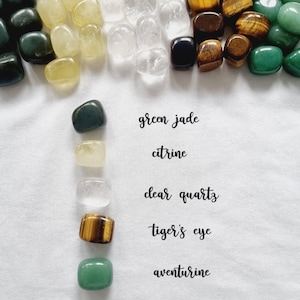 green jade
citrine
clear quartz
tiger's eye
aventurine